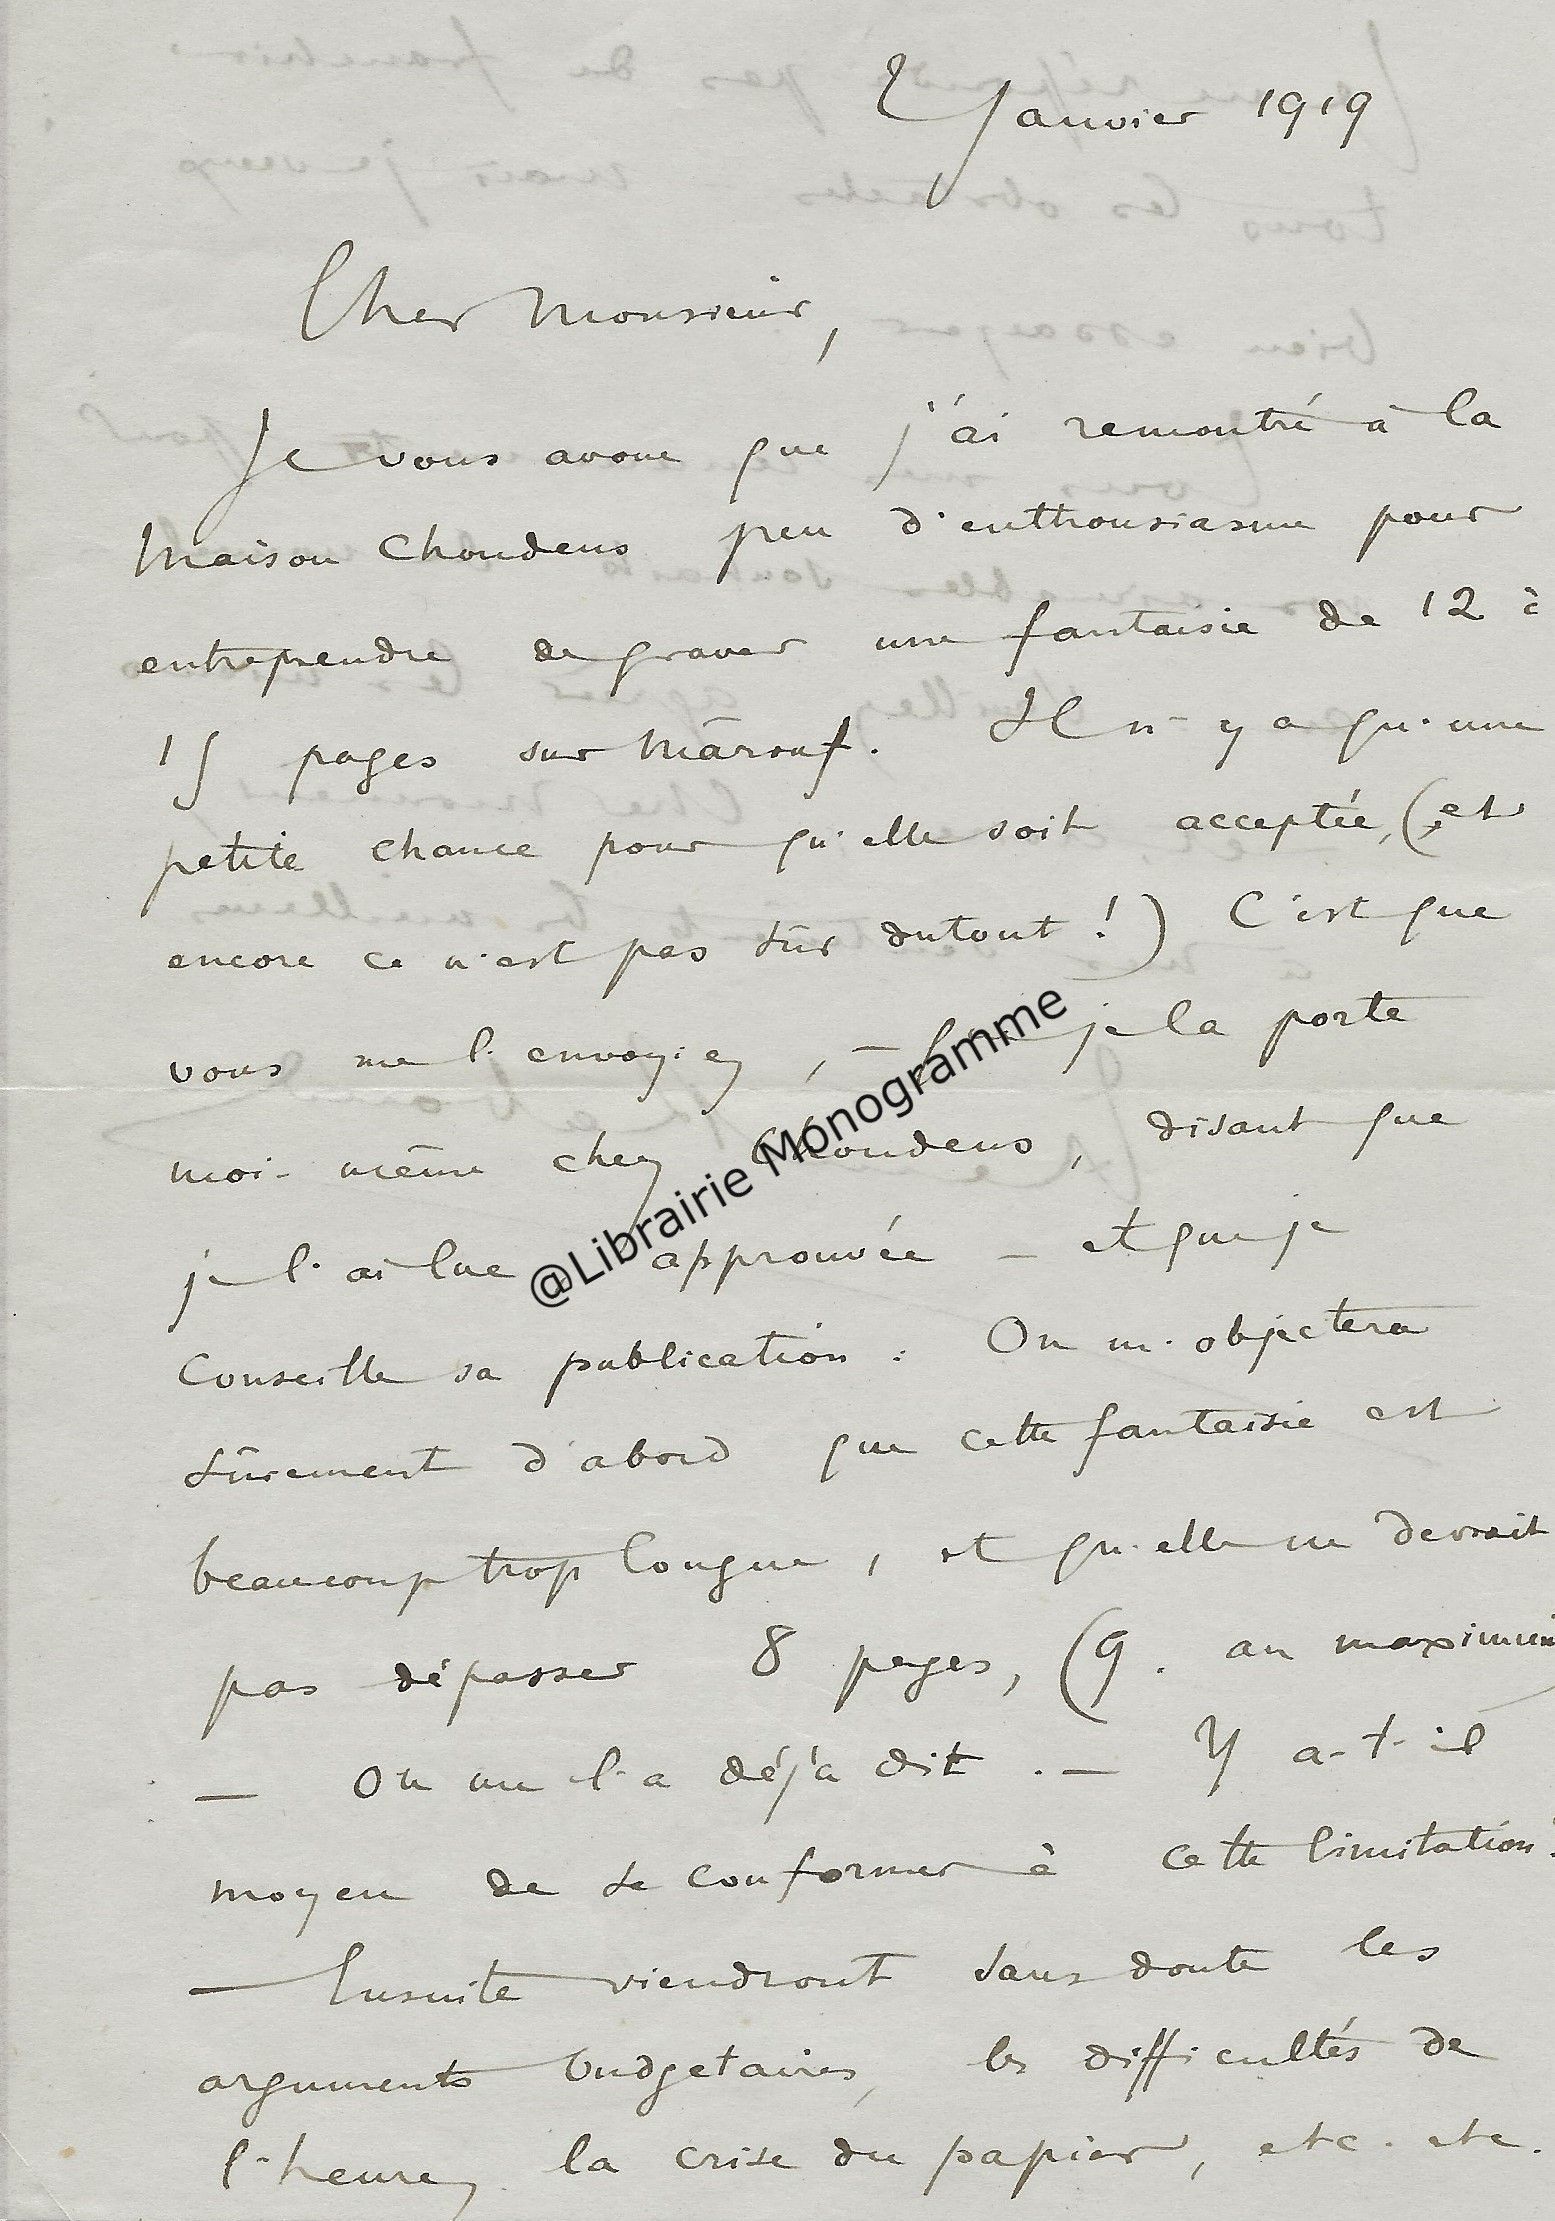 2 Janvier 1919
Cher Monsieur,
Je vous avoue que j'ai remontré à la
Maison Choudens peu d'enthousiasme pour
entreprendre de graver une fantaisie de 12 à
15 pages sur Mârouf. Il n'y a qu'une
petite chance pour qu'elle soit acceptée, (et
encore ce n'est pas sûr dutout !) C'est que
vous me l'envoyiez, — que je la porte
moi-même chez Choudens, disant que
je l'ai lue, approuvée — et que je
Conseille sa publication : On m'objectera
sûrement d'abord que cette fantaisie est
beaucoup trop longue, et qu'elle ne devrait
pas dépasser 8 pages, (9. au maximum)
— On me l'a déjà dit. — Y a-t-il
moyen de se conformer à cette limitation ?
— Ensuite viendront sans doute les
arguments budgetaires, les difficultés de
l'heure, la crise du papier, etc. etc.
@Librairie Monogramme